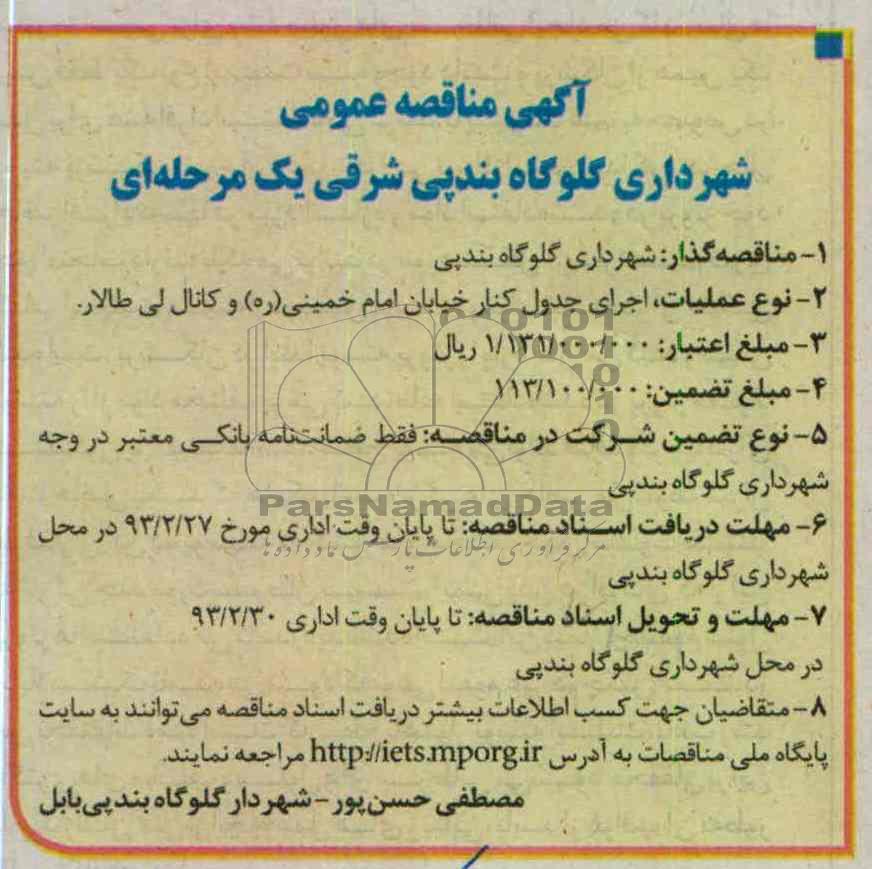 آگهی مناقصه عمومی
شهرداری گلوگاه بندپی شرقی یک مرحله‌ای
۱- مناقصه‌گذار: شهرداری گلوگاه بندپی
۲- نوع عملیات، اجرای جدول کنار خیابان امام خمینی(ره) و کانال لی طالار.
۳- مبلغ اعتبار: ۱/۱۳۱/۰۰۰/۰۰۰ ریال
۴- مبلغ تضمین: ۱۱۳/۱۰۰/۰۰۰
۵- نوع تضمین شرکت در مناقصه: فقط ضمانت‌نامه بانکی معتبر در وجه
شهرداری گلوگاه بندپی
۶- مهلت دریافت اسناد مناقصه: تا پایان وقت اداری مورخ ۹۳/۲/۲۷ در محل
شهرداری گلوگاه بندپی
۷- مهلت و تحویل اسناد مناقصه: تا پایان وقت اداری ۹۳/۲/۳۰
در محل شهرداری گلوگاه بندپی
۸- متقاضیان جهت کسب اطلاعات بیشتر دریافت اسناد مناقصه می‌توانند به سایت
پایگاه ملی مناقصات به آدرس http://iets.mporg.ir مراجعه نمایند.
مصطفی حسن‌پور - شهردار گلوگاه بندپی‌بابل
ParsNamadData
مرکز فرآوری اطلاعات پارس نماد داده‌ها